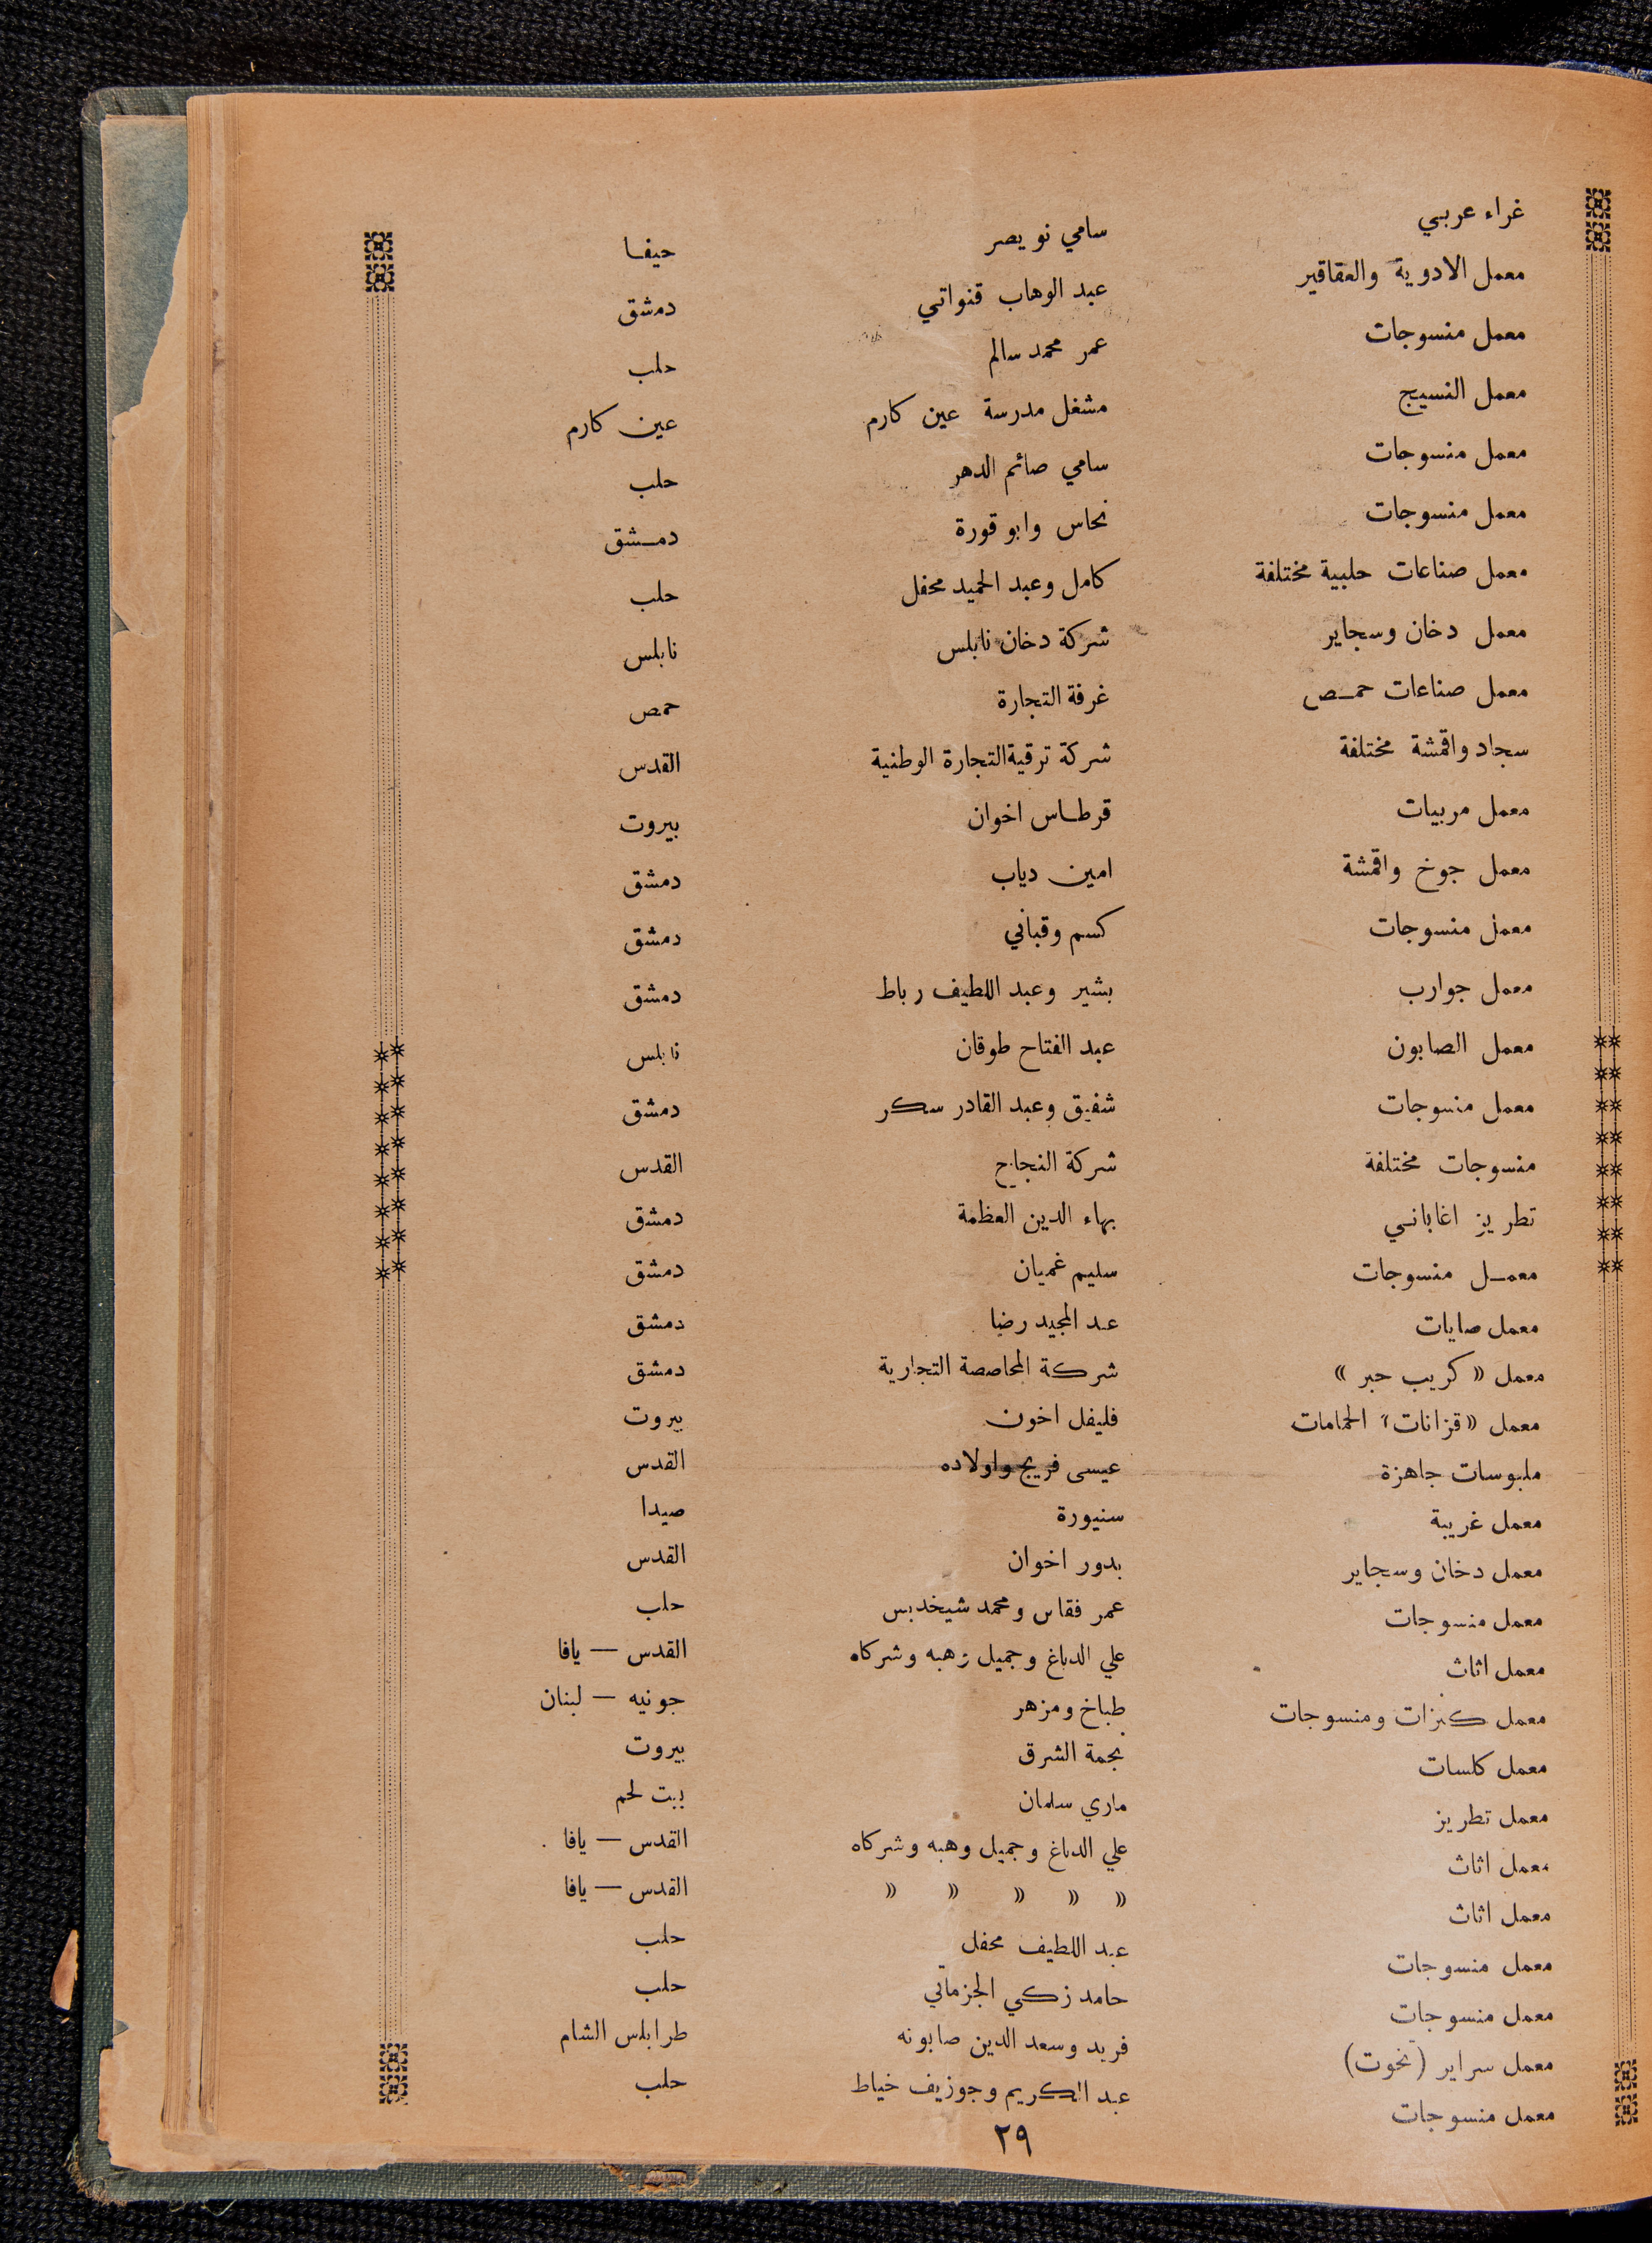 غراء عربي سامي نويصر حيفا
معمل الادوية والعقاقير عبد الوهاب قنواتي دمشق
معمل منسوجات عمر محمد سالم حلب
معمل النسيج مشغل مدرسة عين كارم عين كارم
معمل منسوجات سامي صائم الدهر حلب
معمل منسوجات نحاس وابو قورة دمشق
معمل صناعات حلبية مختلفة كامل وعبد الحميد محفل حلب
معمل دخان وسجاير شركة دخان نابلس نابلس
معمل صناعات حمص غرفة التجارة حمص
سجاد واقمشة مختلفة شركة ترقية التجارة الوطنية القدس
معمل مربيات قرطاس اخوان بيروت
معمل جوخ واقمشة امين دياب دمشق
معمل منسوجات كسم وقباني دمشق
معمل جوارب بشير وعبد اللطيف رباط دمشق
معمل الصابون عبد الفتاح طوقان نابلس
معمل منسوجات شفيق وعبد القادر سكر دمشق
منسوجات مختلفة شركة النجاح القدس
تطريز اغاباني بهاء الدين العظمة دمشق
معمل منسوجات سليم غميان دمشق
معمل صايات عبد المجيد رضا دمشق
معمل « كريب حبر » شركة المحاصصة التجارية دمشق
معمل « قزانات » الحمامات فليفل اخون بيروت
ملبوسات جاهزة عيسى فريج واولاده القدس
معمل غريبة سنيورة صيدا
معمل دخان وسجاير بدور اخوان القدس
معمل منسوجات عمر فقاس ومحمد شيخدبس حلب
معمل اثاث علي الدباغ وجميل زهبه وشركاه القدس — يافا
معمل كنزات ومنسوجات طباخ ومزهر جونيه — لبنان
معمل كلسات نجمة الشرق بيروت
معمل تطريز ماري سلمان بيت لحم
معمل اثاث علي الدباغ وجميل وهبه وشركاه القدس — يافا
معمل اثاث » » » » » القدس — يافا
معمل منسوجات عبد اللطيف محفل حلب
معمل منسوجات حامد زكي الجزماتي حلب
معمل سراير (تخوت) فريد وسعد الدين صابونه طرابلس الشام
معمل منسوجات عبد الكريم وجوزيف خياط حلب
٢٩